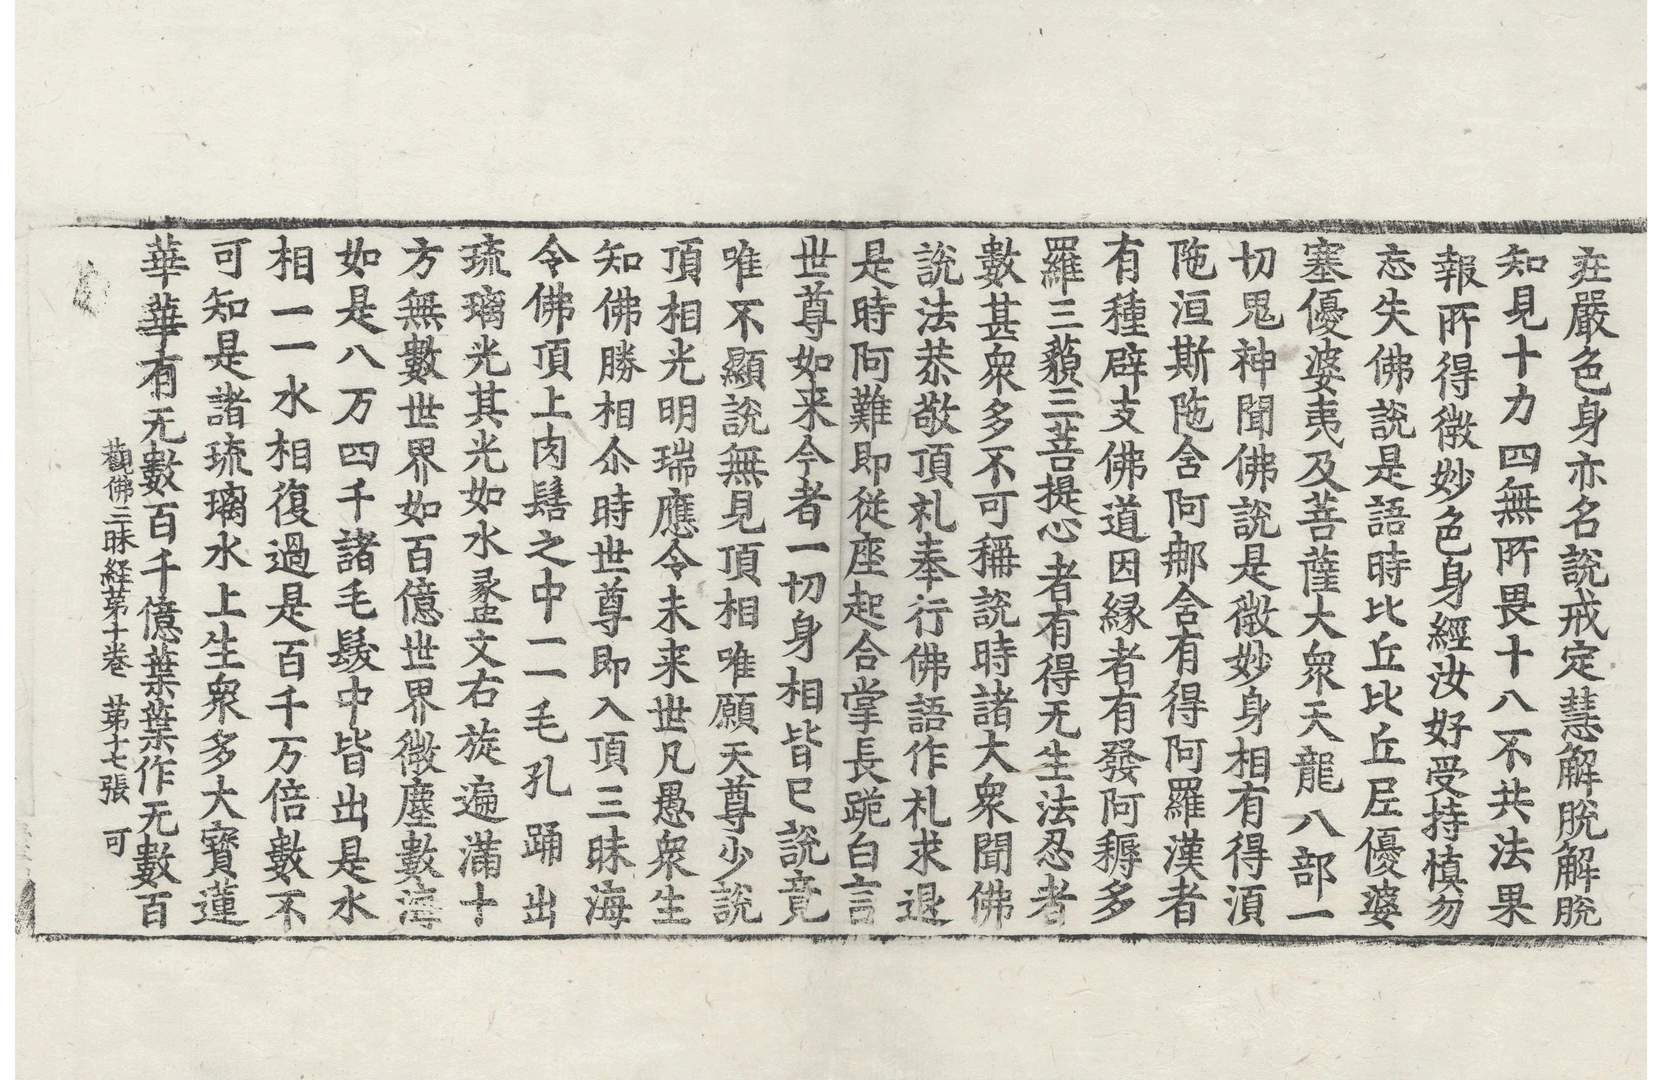 㽵嚴色身亦名說戒定慧解脫解脫
知見十力四無所畏十八不共法果
報所得微妙色身經汝好受持慎勿
忘失佛說是語時比丘比丘尼優婆
塞優婆夷及菩薩大衆天龍八部一
切鬼神聞佛說是微妙身相有得湏
陁洹斯陁含阿那含有得阿羅漢者
有種辟支佛道因緣者有發阿耨多
羅三藐三菩提心者有得无生法忍者
數甚衆多不可稱說時諸大衆聞佛
說法恭敬頂礼奉行佛語作礼求退
是時阿難即從座起合掌長跪白言
世尊如来今者一切身相皆已說竟
唯不顯說無見頂相唯願天尊少說
頂相光明瑞應令未来世凡愚衆生
知佛勝相尒時世尊即入頂三昧海
令佛頂上肉髻之中一一毛孔踊出
琉璃光其光如水㣇文右旋遍滿十
方無數世界如百億世界微塵數海
如是八万四千諸毛髮中皆出是水
相一一水相復過是百千万倍數不
可知是諸琉璃水上生衆多大寶蓮
華華有无數百千億葉葉作无數百
觀佛三昧経苐十卷 苐十七張 可